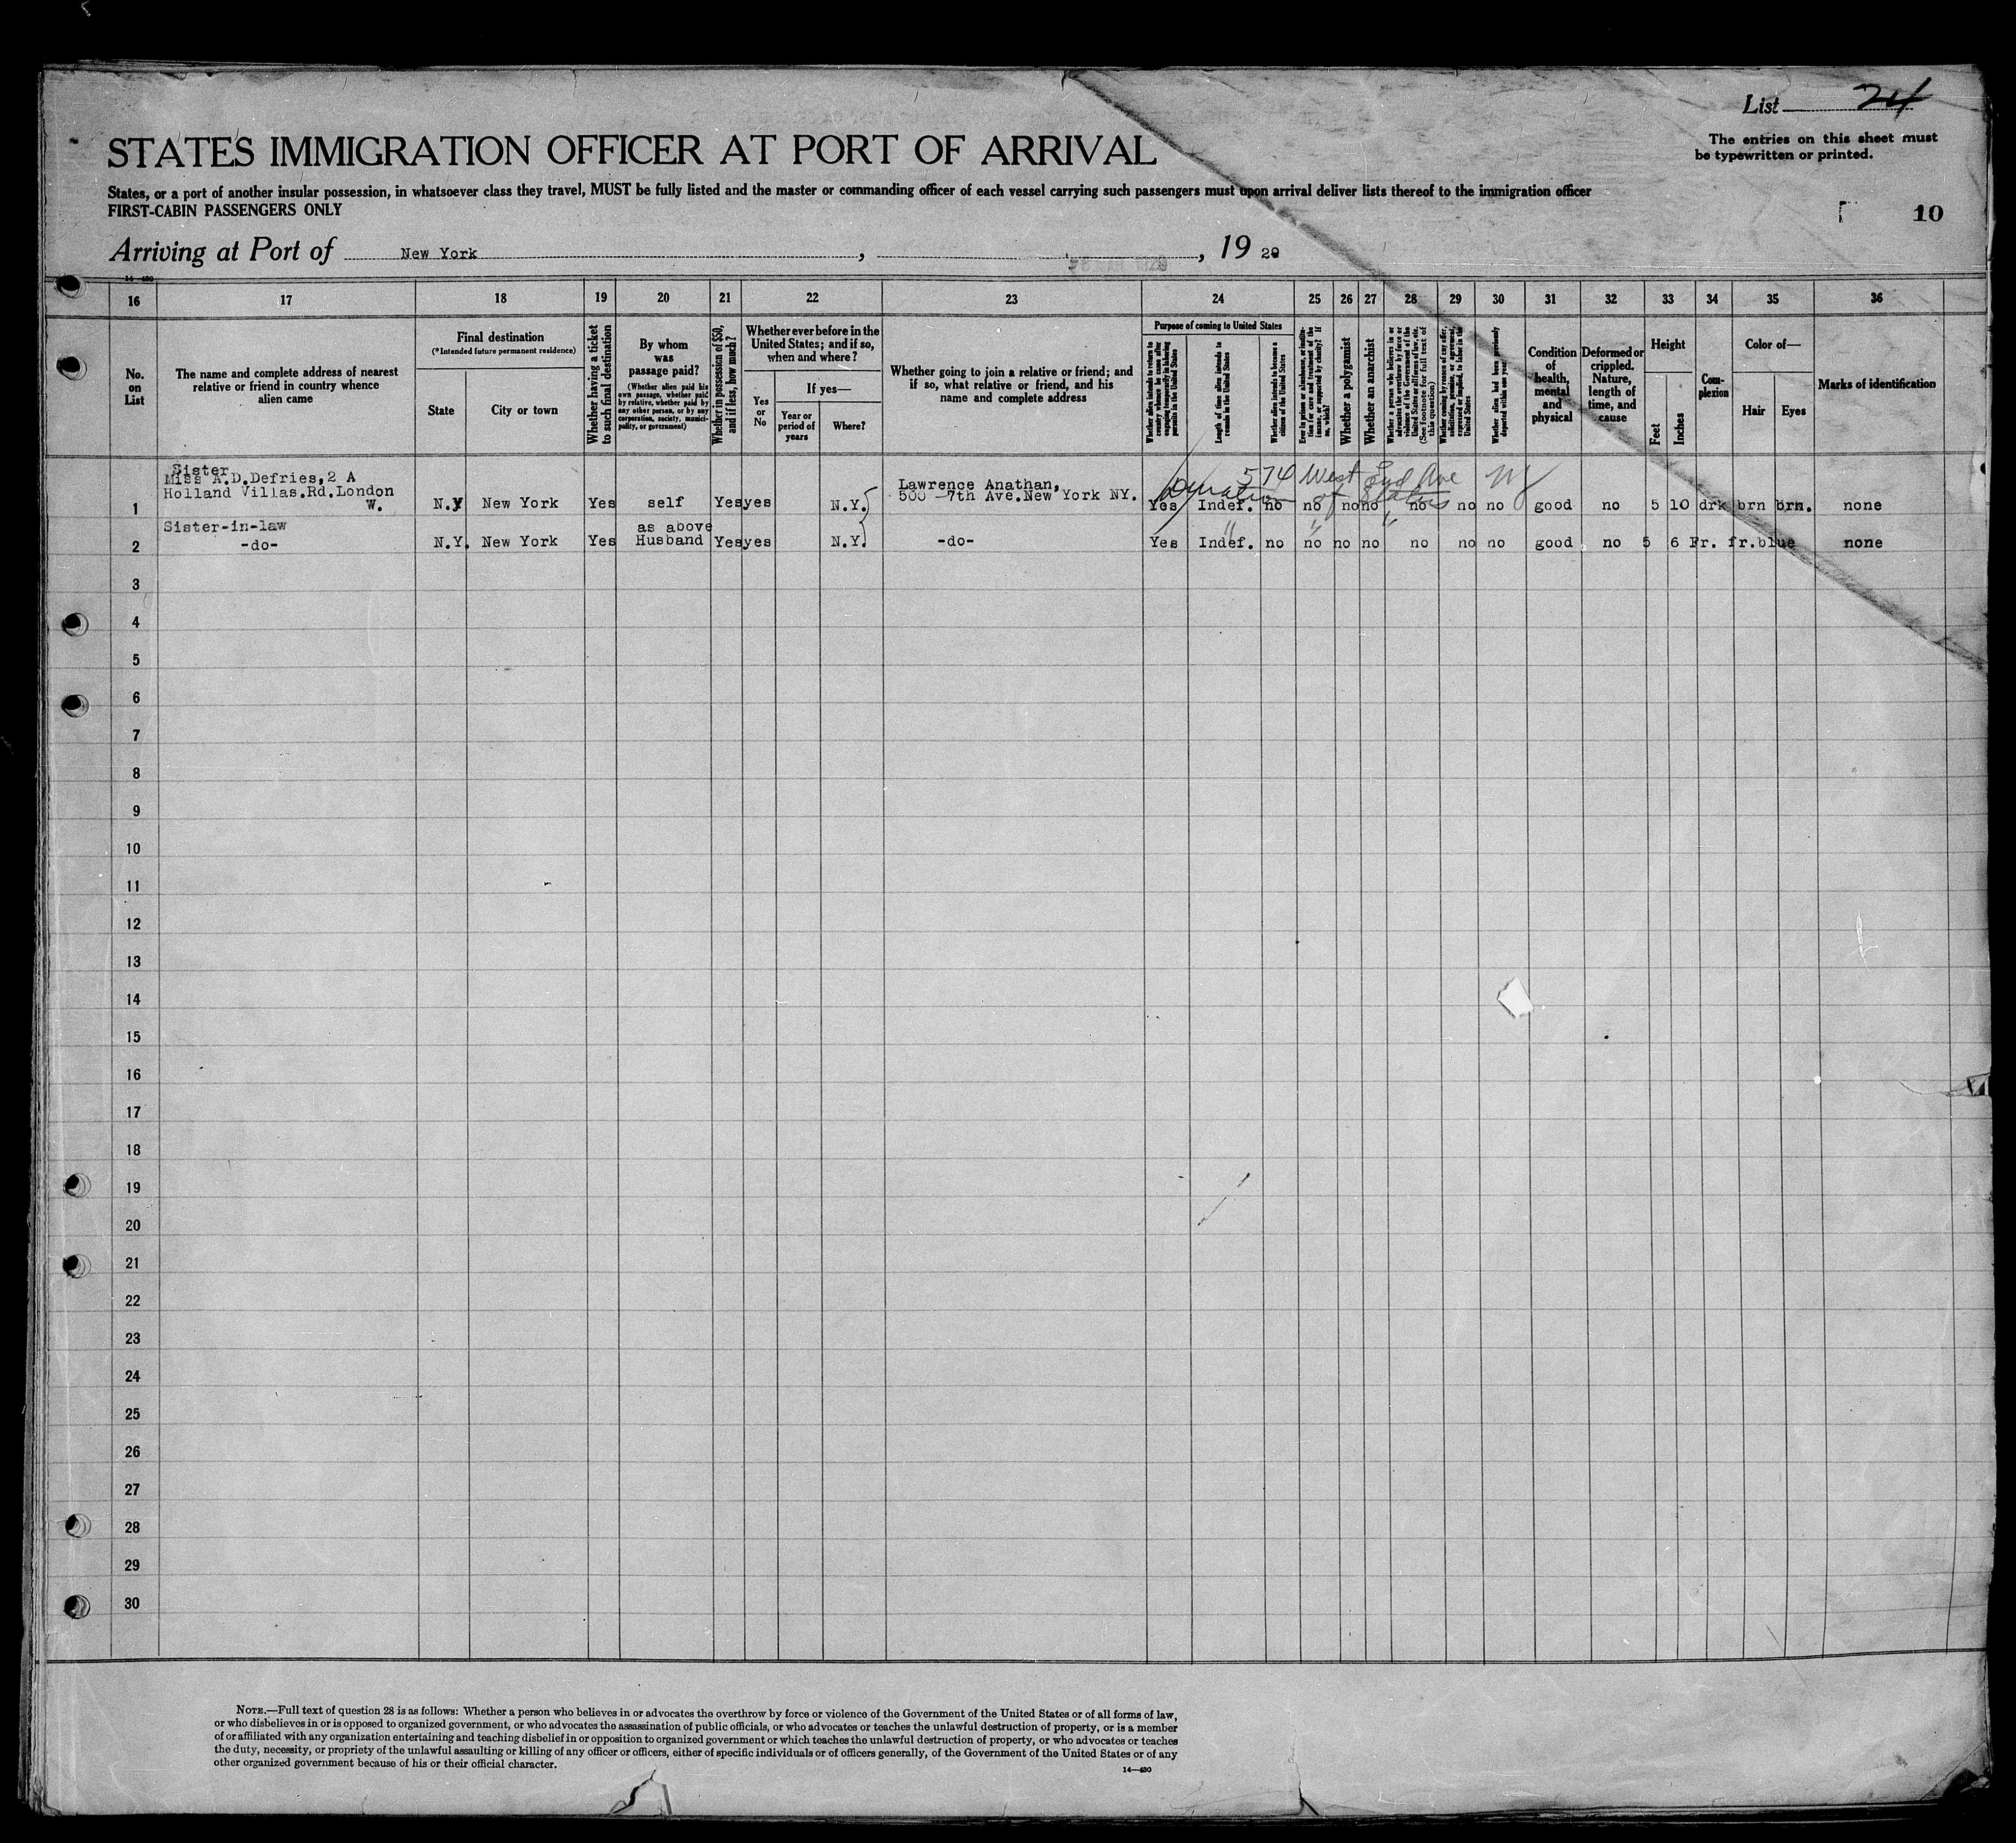 List 24
The entries on this sheet must
be typewritten or printed.
STATES IMMIGRATION OFFICER AT PORT OF ARRIVAL
States, or a port of another insular possession, in whatsoever class they travel, MUST be fully listed and the master or commanding officer of each vessel carrying such passengers must upon arrival deliver lists thereof to the immigration officer
FIRST-CABIN PASSENGERS ONLY
10
Arriving at Port of New York , , 19 29
14-430
16 17 18 19 20 21 22 23 24 25 26 27 28 29 30 31 32 33 34 35 36
No. on List
The name and complete address of nearest
relative or friend in country whence
alien came
Final destination
(*Intended future permanent residence)
State
City or town
Whether having a ticket
to such final destination
By whom
was
passage paid?
(Whether alien paid his
own passage, whether paid
by relative, whether paid by
any other person, or by any
corporation, society, munici-
pality, or government)
Whether in possession of $50,
and if less, how much?
Whether ever before in the
United States; and if so,
when and where?
Yes
or
No
If yes—
Year or
period of
years
Where?
Whether going to join a relative or friend; and
if so, what relative or friend, and his
name and complete address
Purpose of coming to United States
Whether alien intends to return to
country whence he came after
engaging temporarily in laboring
pursuits in the United States
Length of time alien intends to
remain in the United States
Whether alien intends to become a
citizen of the United States
Ever in prison or almshouse, or institu-
tion for care and treatment of the
insane, or supported by charity? If
so, which?
Whether a polygamist
Whether an anarchist
Whether a person who believes in or
advocates the overthrow by force or
violence of the Government of the
United States or all forms of law, etc.
(See footnote for full text of
this question)
Whether coming by reason of any offer,
solicitation, promise, or agreement,
expressed or implied, to labor in the
United States
Whether alien had been previously
deported within one year
Condition
of
health,
mental
and
physical
Deformed or
crippled.
Nature,
length of
time, and
cause
Height
Feet
Inches
Com-
plexion
Color of—
Hair
Eyes
Marks of identification
574 West End Ave NY
Sister
Miss A.D.Defries,2 A
Holland Villas.Rd.London
W.
Lawrence Anathan,
500 -7th Ave.New York NY.
1 N.Y New York Yes self Yes yes N.Y. Yes Indef. no no no no no no no good no 5 10 drk brn brn. none
Sister-in-law
as above
2 -do- N.Y. New York Yes Husband Yes yes N.Y. -do- Yes Indef. no no no no no no no good no 5 6 Fr. fr. blue none
3
4
5
6
7
8
9
10
11
12
13
14
15
16
17
18
19
20
21
22
23
24
25
26
27
28
29
30
NOTE.—Full text of question 28 is as follows: Whether a person who believes in or advocates the overthrow by force or violence of the Government of the United States or of all forms of law,
or who disbelieves in or is opposed to organized government, or who advocates the assassination of public officials, or who advocates or teaches the unlawful destruction of property, or is a member
of or affiliated with any organization entertaining and teaching disbelief in or opposition to organized government or which teaches the unlawful destruction of property, or who advocates or teaches
the duty, necessity, or propriety of the unlawful assaulting or killing of any officer or officers, either of specific individuals or of officers generally, of the Government of the United States or of any
other organized government because of his or their official character.
14—430